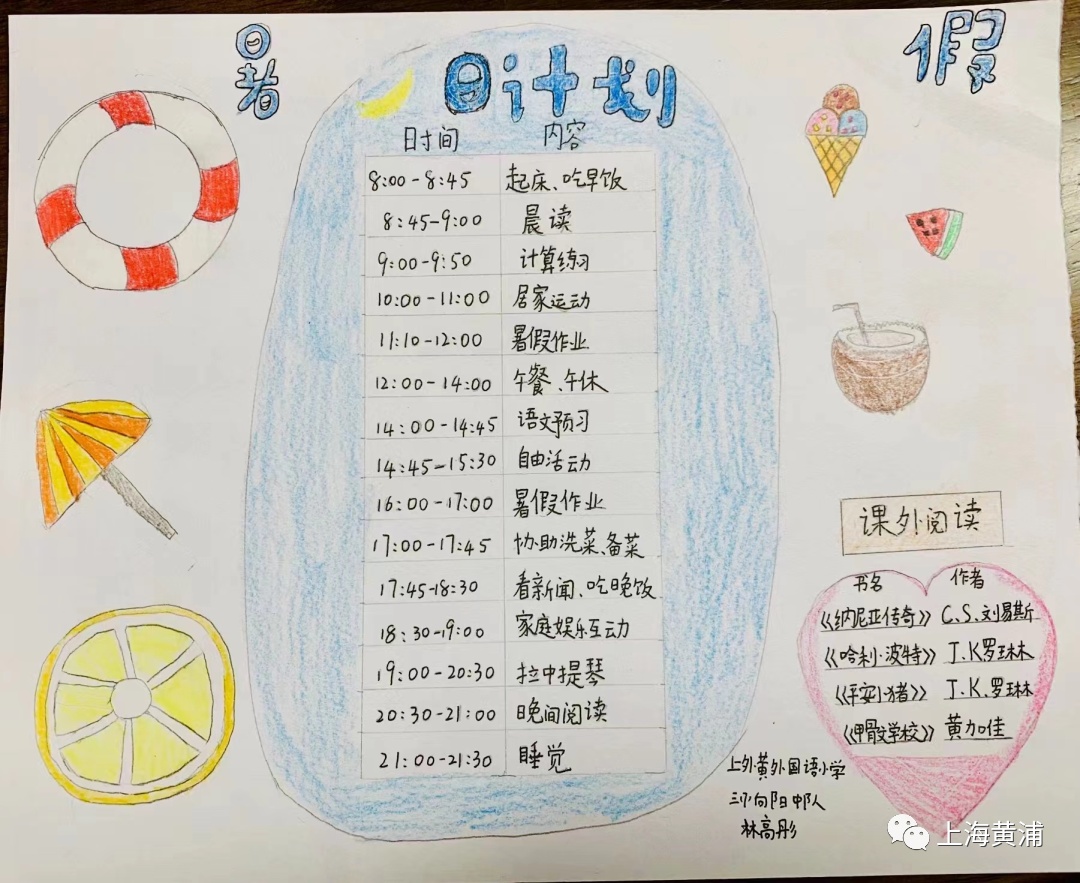 暑
日计划
假
日时间 内容
8:00-8:45 起床、吃早饭
8:45-9:00 晨读
9:00-9:50 计算练习
10:00-11:00 居家运动
11:10-12:00 暑假作业
12:00-14:00 午餐、午休
14:00-14:45 语文预习
14:45-15:30 自由活动
16:00-17:00 暑假作业
17:00-17:45 协助洗菜、备菜
17:45-18:30 看新闻、吃晚饭
18:30-19:00 家庭娱乐互动
19:00-20:30 拉中提琴
20:30-21:00 晚间阅读
21:00-21:30 睡觉
课外阅读
书名 作者
《纳尼亚传奇》 C.S.刘易斯
《哈利·波特》 J.K罗琳林
《平安小猪》 J.K.罗琳
《甲骨文学校》 黄加佳
上外黄外国语小学
向阳中队
林高彤
上海黄浦